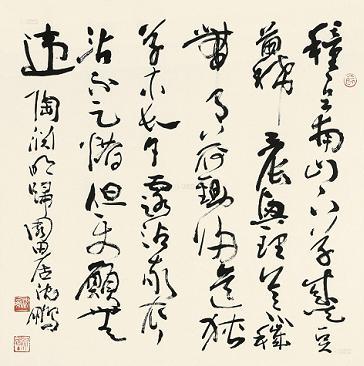 種豆南山下草盛豆
苗稀晨興理荒穢
帶月荷鋤歸道狹
草木長夕露沾我衣
沾不足惜但使願無
違
陶淵明歸園田居沈鵬